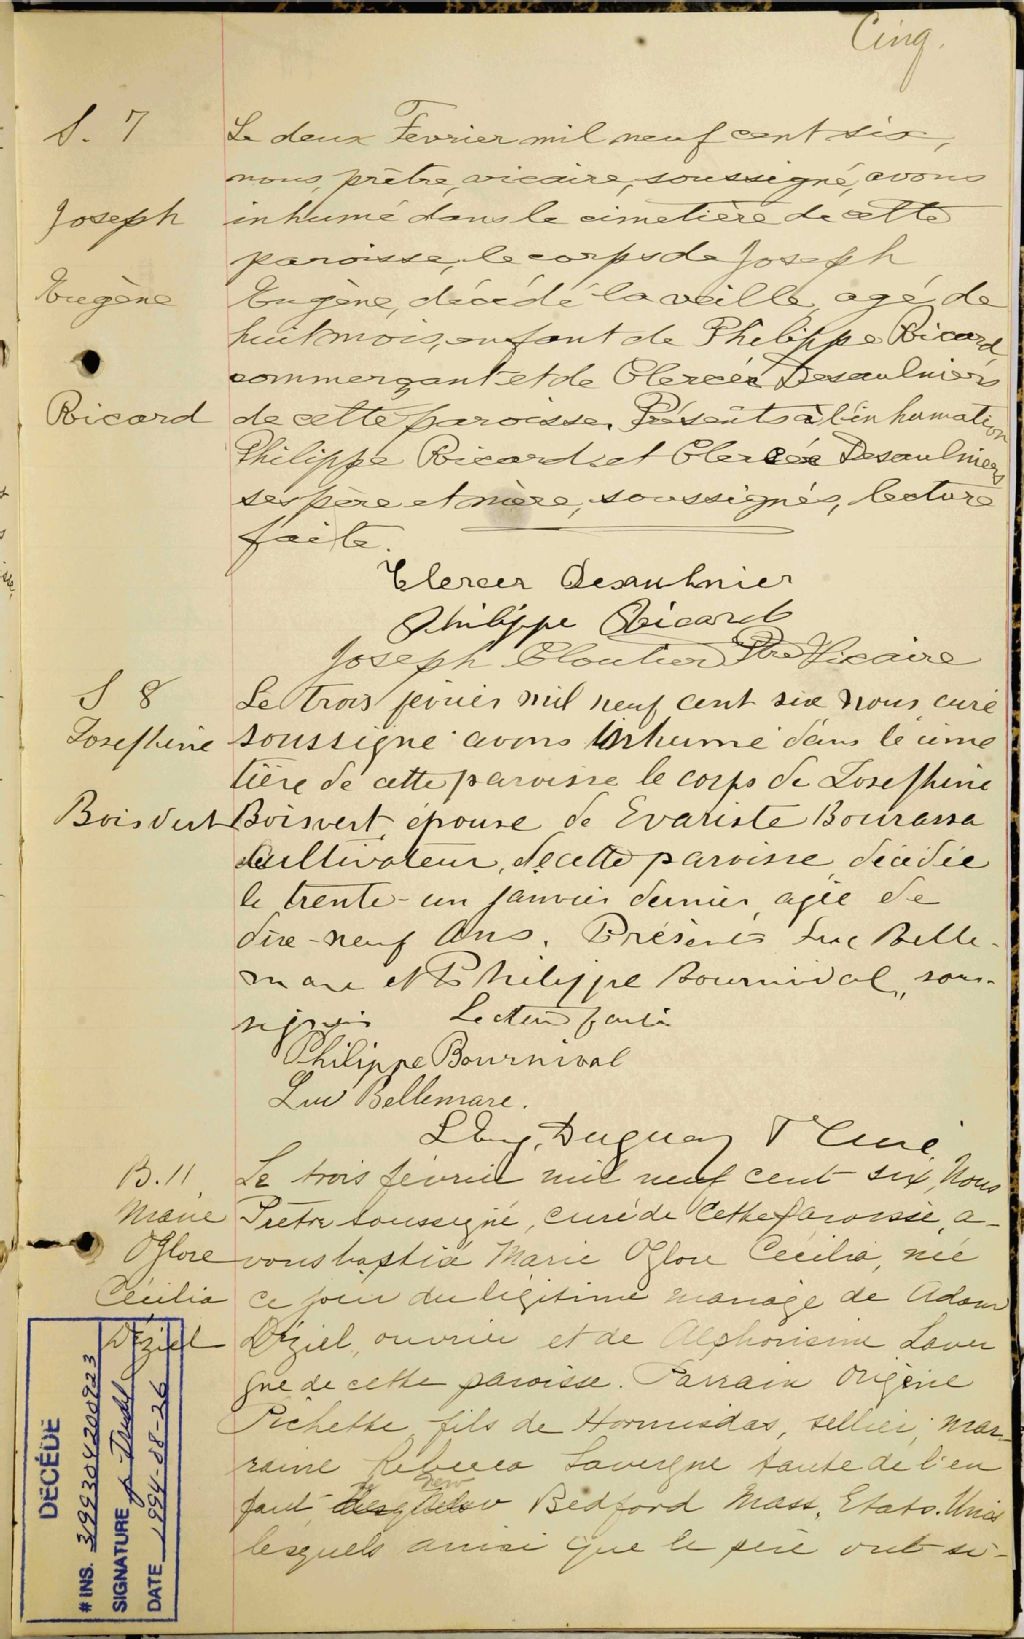 Cinq.
S. 7
Joseph
Eugène
Ricard
Le deux Fevrier mil neuf cent six,
nous, prêtre, vicaire, soussigné, avons
inhumé dans le cimetière de cette
paroisse, le corps de Joseph
Eugène, décédé la veille, agé de
huit mois, enfant de Philippe Ricard
commerçant et de Clercée Desaulniers
de cette paroisse. Présents à l'inhumation
Philippe Ricard et Clercée Desaulniers
ses père et mère, soussignés, lecture
faite.
Clercer Desaulnier
Philippe Ricard
Joseph Cloutier Ptre Vicaire
S 8
Josephine
Boisvert
Le trois février mil neuf cent six nous curé
soussigné avons inhumé dans le cime
tière de cette paroisse le corps de Josephine
Boisvert, épouse de Evariste Bourassa
cultivateur, de cette paroisse, décédée
le trente-un janvier dernier, agée de
dix-neuf ans. Présents Luc Belle-
mare et Philippe Bournival, sous-
signés Lecture faite
Philippe Bournival
Luc Bellemare.
Duguay Ptre Curé
B. 11
Marie
Cécilia
Déziel
Le trois février mil neuf cent six, Nous
Prêtre soussigné, curé de cette paroisse, a-
vons baptisé Marie Cécilia, née
ce jour du légitime mariage de Adam
Déziel, ouvrier et de Alphonsine Laver
gne de cette paroisse. Parrain Origène
Pichette, fils de Hormisdas, sellier, mar-
raine Rebecca Lavergne tante de l'en
fant, New Bedford Mass. Etats-Unis
lesquels ainsi que le père ont si-
DÉCÉDÉ
# INS. 3199304200923
SIGNATURE
DATE 1994-08-26